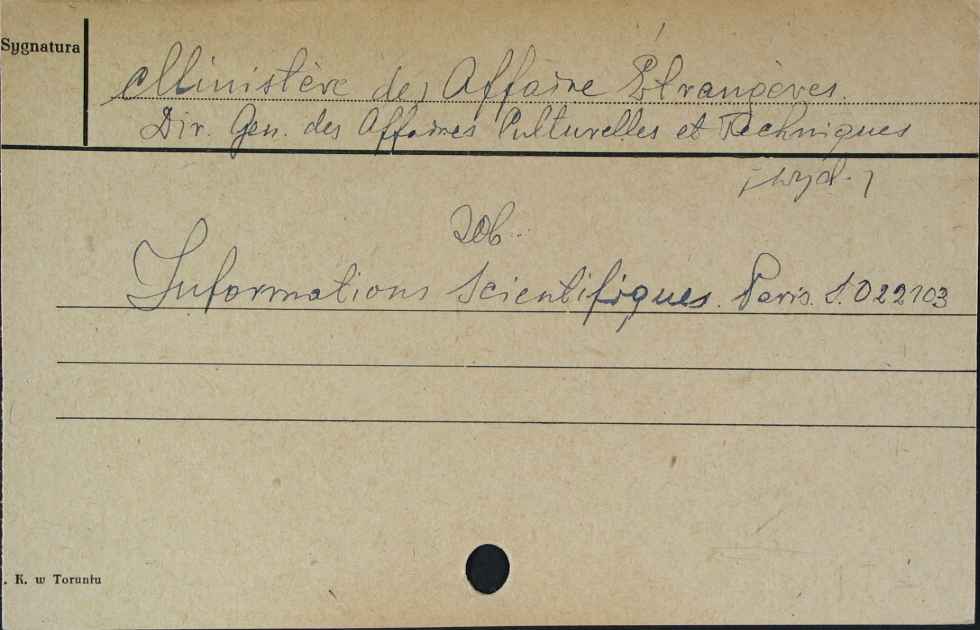 Sygnatura
Ministère des Affaire Etrangères.
Dir. Gen. des Affaires Culturelles et Techniques
/wyd./
zob.
Informations Scientifiques. Paris. S. 022103
. K. w Toruniu